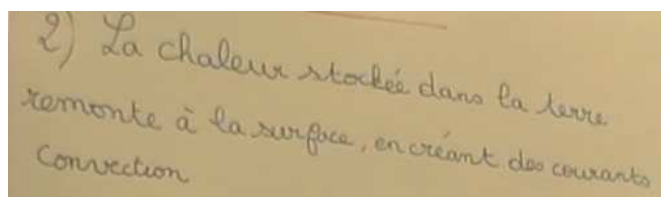 2) La chaleur stockée dans la terre
remonte à la surface, en créant des courants
convection